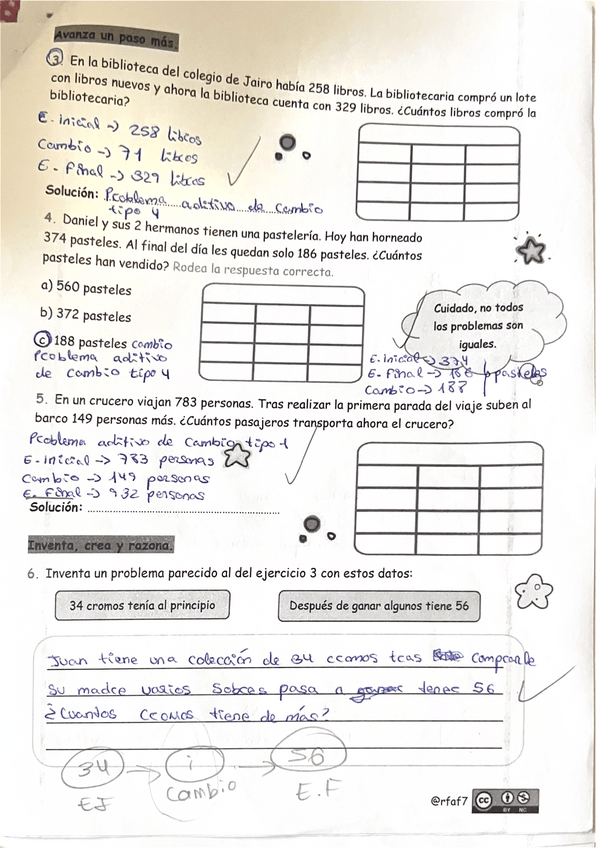 Avanza un paso más.
3. En la biblioteca del colegio de Jairo había 258 libros. La bibliotecaria compró un lote
con libros nuevos y ahora la biblioteca cuenta con 329 libros. ¿Cuántos libros compró la
bibliotecaria?
E. inicial -> 258 libros
Cambio -> 71 libros
E. Final -> 329 libros
Solución: Problema aditivo de cambio
tipo 4
4. Daniel y sus 2 hermanos tienen una pastelería. Hoy han horneado
374 pasteles. Al final del día les quedan solo 186 pasteles. ¿Cuántos
pasteles han vendido? Rodea la respuesta correcta.
a) 560 pasteles
b) 372 pasteles
c) 188 pasteles cambio
Problema aditivo
de cambio tipo 4
Cuidado, no todos
los problemas son
iguales.
E. inicial -> 374
E. Final -> 186 pasteles
Cambio -> 188
5. En un crucero viajan 783 personas. Tras realizar la primera parada del viaje suben al
barco 149 personas más. ¿Cuántos pasajeros transporta ahora el crucero?
Problema aditivo de cambio tipo 1
E-inicial -> 783 personas
Cambio -> 149 personas
E. Final -> 932 personas
Solución:
Inventa, crea y razona.
6. Inventa un problema parecido al del ejercicio 3 con estos datos:
34 cromos tenía al principio
Después de ganar algunos tiene 56
Juan tiene una colección de 34 cromos tras comprarle
su madre varios sobres pasa a tener 56
¿Cuantos cromos tiene de más?
34 -> i -> 56
EI Cambio E.F
@rfaf7
cc BY NC